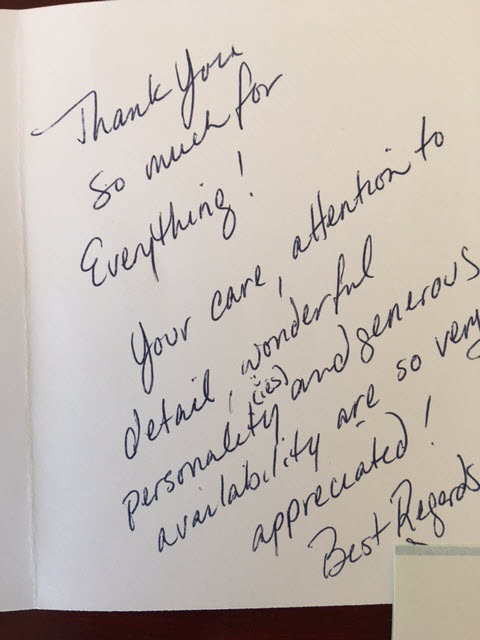 Thank You
so much for
Everything!
Your care, attention to
detail, wonderful
personality (ies) and generous
availability are so very
appreciated!
Best Regards